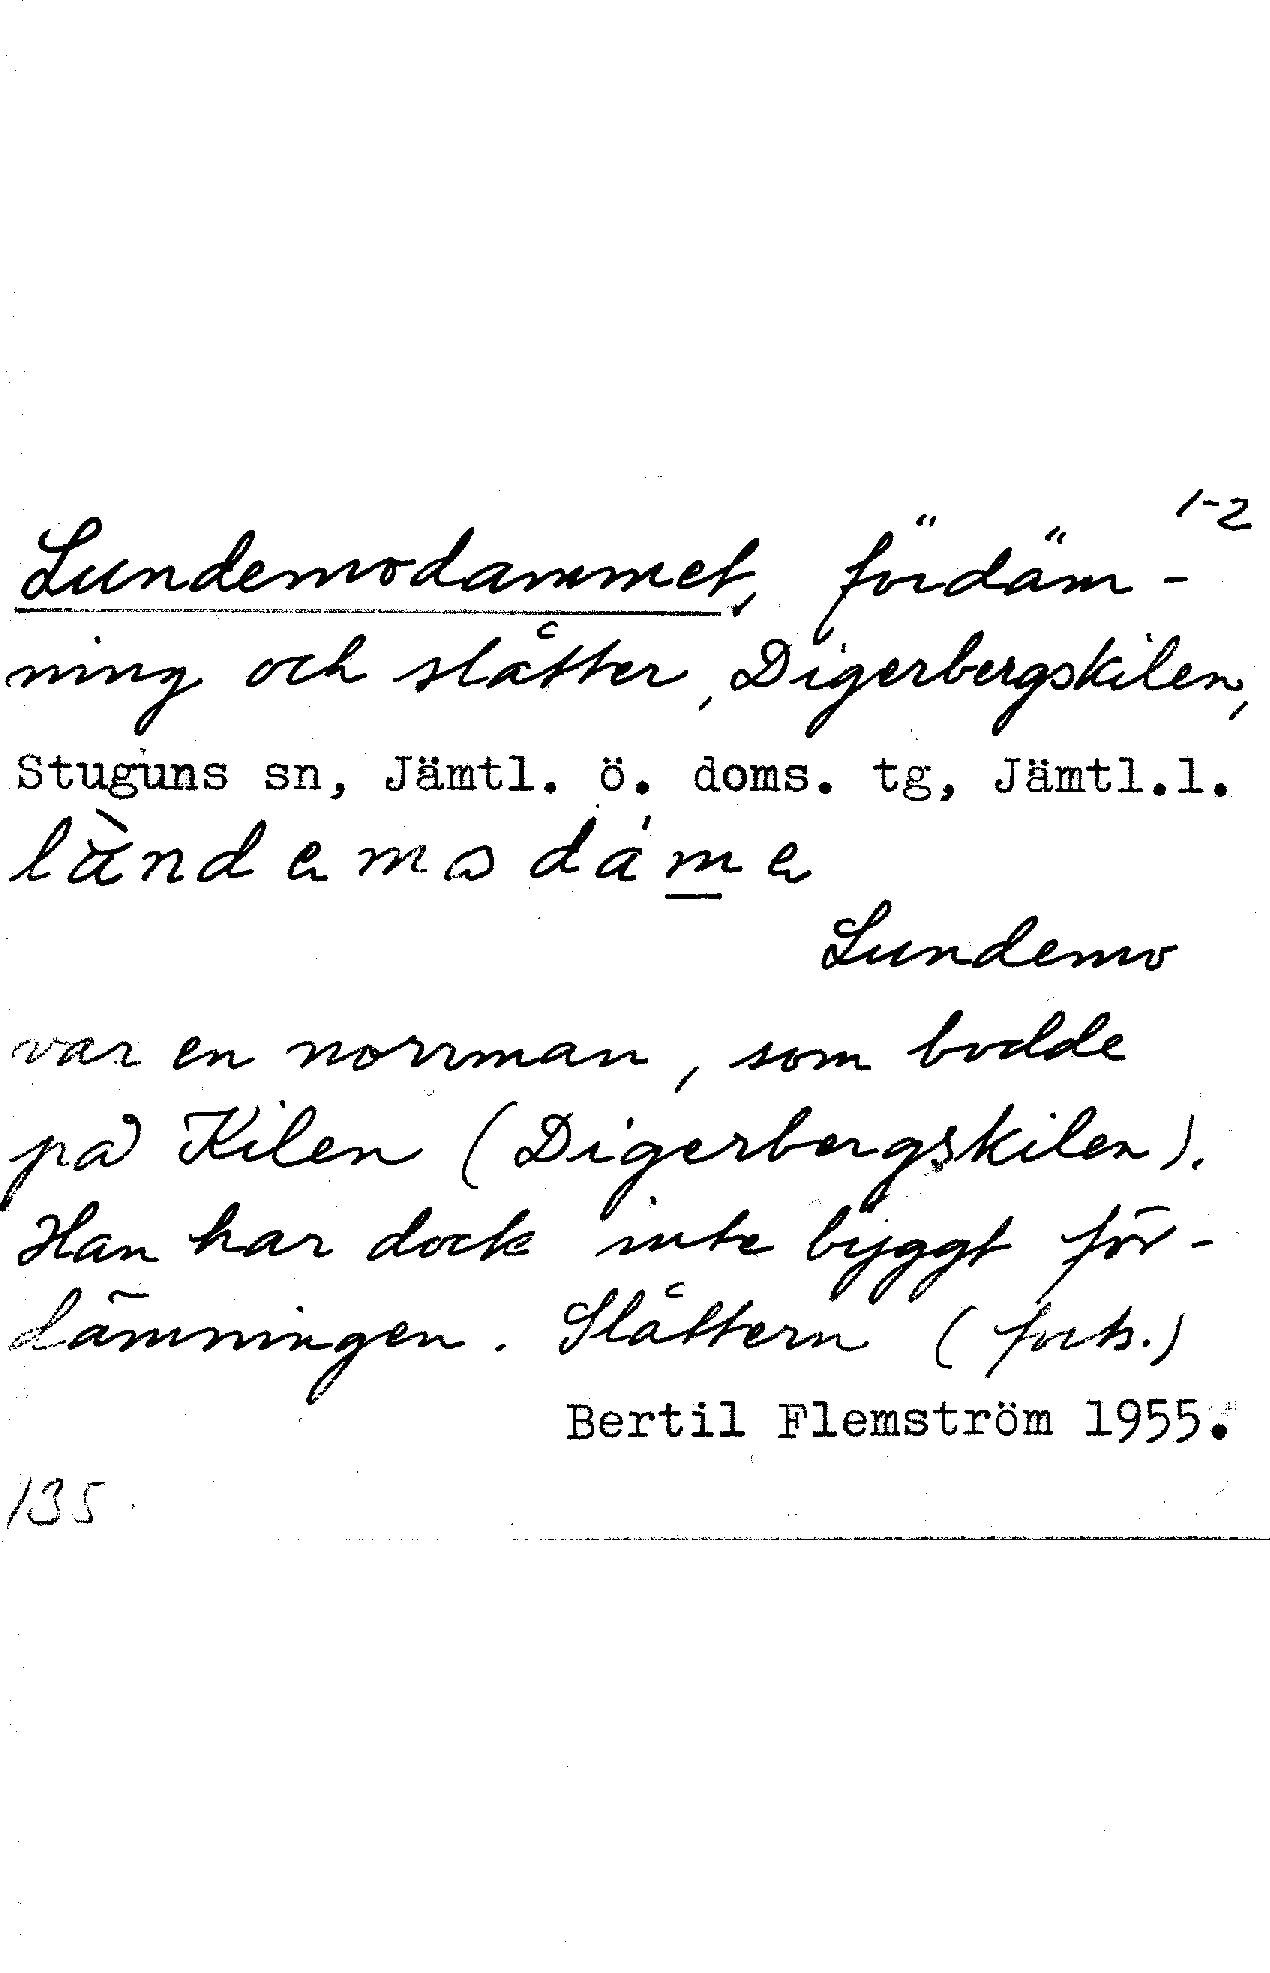 1-2
Lundemodammet, fördäm-
ning och slåtter, Digerbergskilen,
Stuguns sn, Jämtl. ö. doms. tg, Jämtl.l.
Lundemo
var en norrman, som bodde
på Kilen (Digerbergskilen).
Han har dock inte byggt för-
dämningen. Slåttern (forts.)
Bertil Flemström 1955.
135